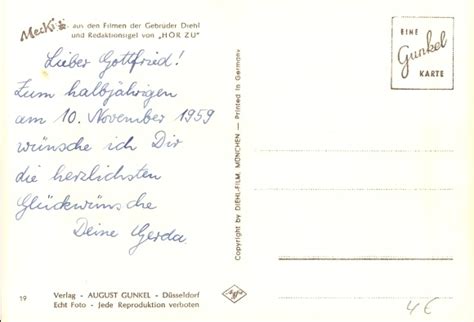 Mecki aus den Filmen der Gebrüder Diehl
und Redaktionsigel von "HÖR ZU"
Lieber Gottfried!
Zum halbjährigen
am 10. November 1959
wünsche ich Dir
die herzlichsten
Glückwünsche
Deine Gerda
19
Verlag - AUGUST GUNKEL - Düsseldorf
Echt Foto - Jede Reproduktion verboten
Copyright by DIEHL-FILM, MÜNCHEN — Printed in Germany
Agfa
EINE
Gunkel
KARTE
4€